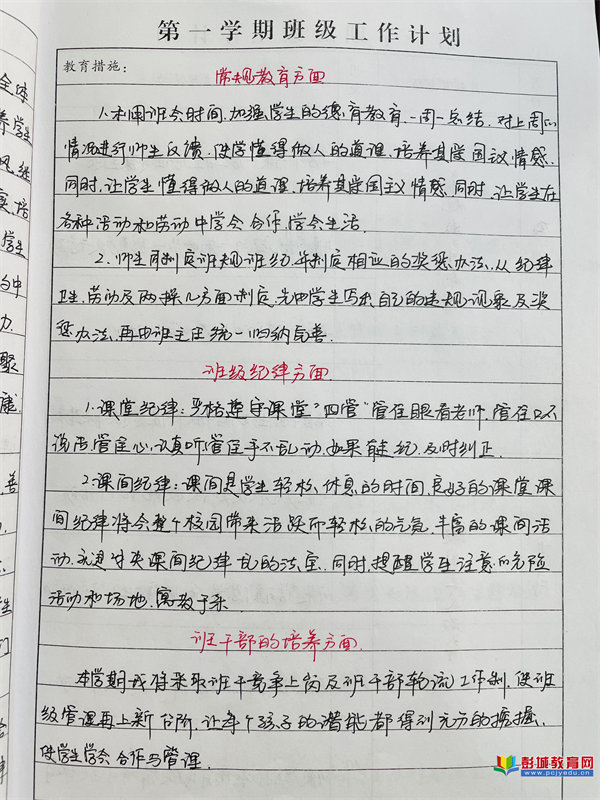 第一学期班级工作计划
教育措施：
常规教育方面
1.利用班会时间,加强学生的德育教育,一周一总结.对上周的
情况进行师生反馈.使学懂得做人的道理,培养其爱国主义情感.
同时,让学生懂得做人的道理.培养其爱国主义情感.同时,让学生在
各种活动和劳动中学会合作,学会生活.
2.师生同制定班规班纪,并制定相应的奖惩办法,从纪律
卫生,劳动及两操几方面制定,先由学生写出自己的违规现象及奖
惩办法,再由班主任统一归纳完善.
班级纪律方面.
1.课堂纪律:严格遵守课堂"四管"管住眼看老师,管住口不
说话管住心,认真听管住手不乱动.如果有违纪,及时纠正.
2.课间纪律:课间是学生轻松,休息的时间,良好的课堂课
间纪律将会整个校园带来活跃而轻松的气氛,丰富的课间活
动,课间纪律的法宝.同时,提醒学生注意的危险
活动和场地,寓教于乐.
班干部的培养方面.
本学期我将采取班干竞争上岗及班干部轮流工作制,使班
级管理再上新台阶,让每个孩子的潜能都得到充分的挖掘.
使学生学会合作与管理.
全体
养学生
风,继
培
学生
中
力.
聚
康.
善
生
门
彭城教育网
www.pcjyedu.cn